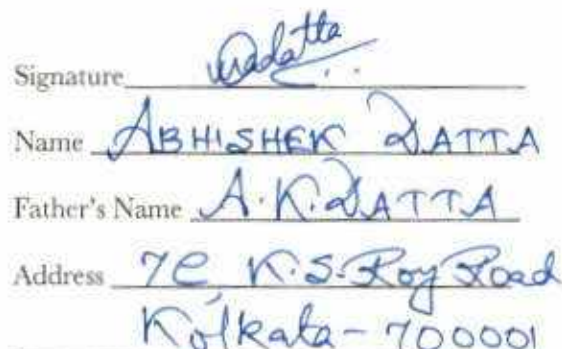 Signature
Name ABHISHEK DATTA
Father's Name A.K. DATTA
Address 7C, K.S. Roy Road
Kolkata - 700001